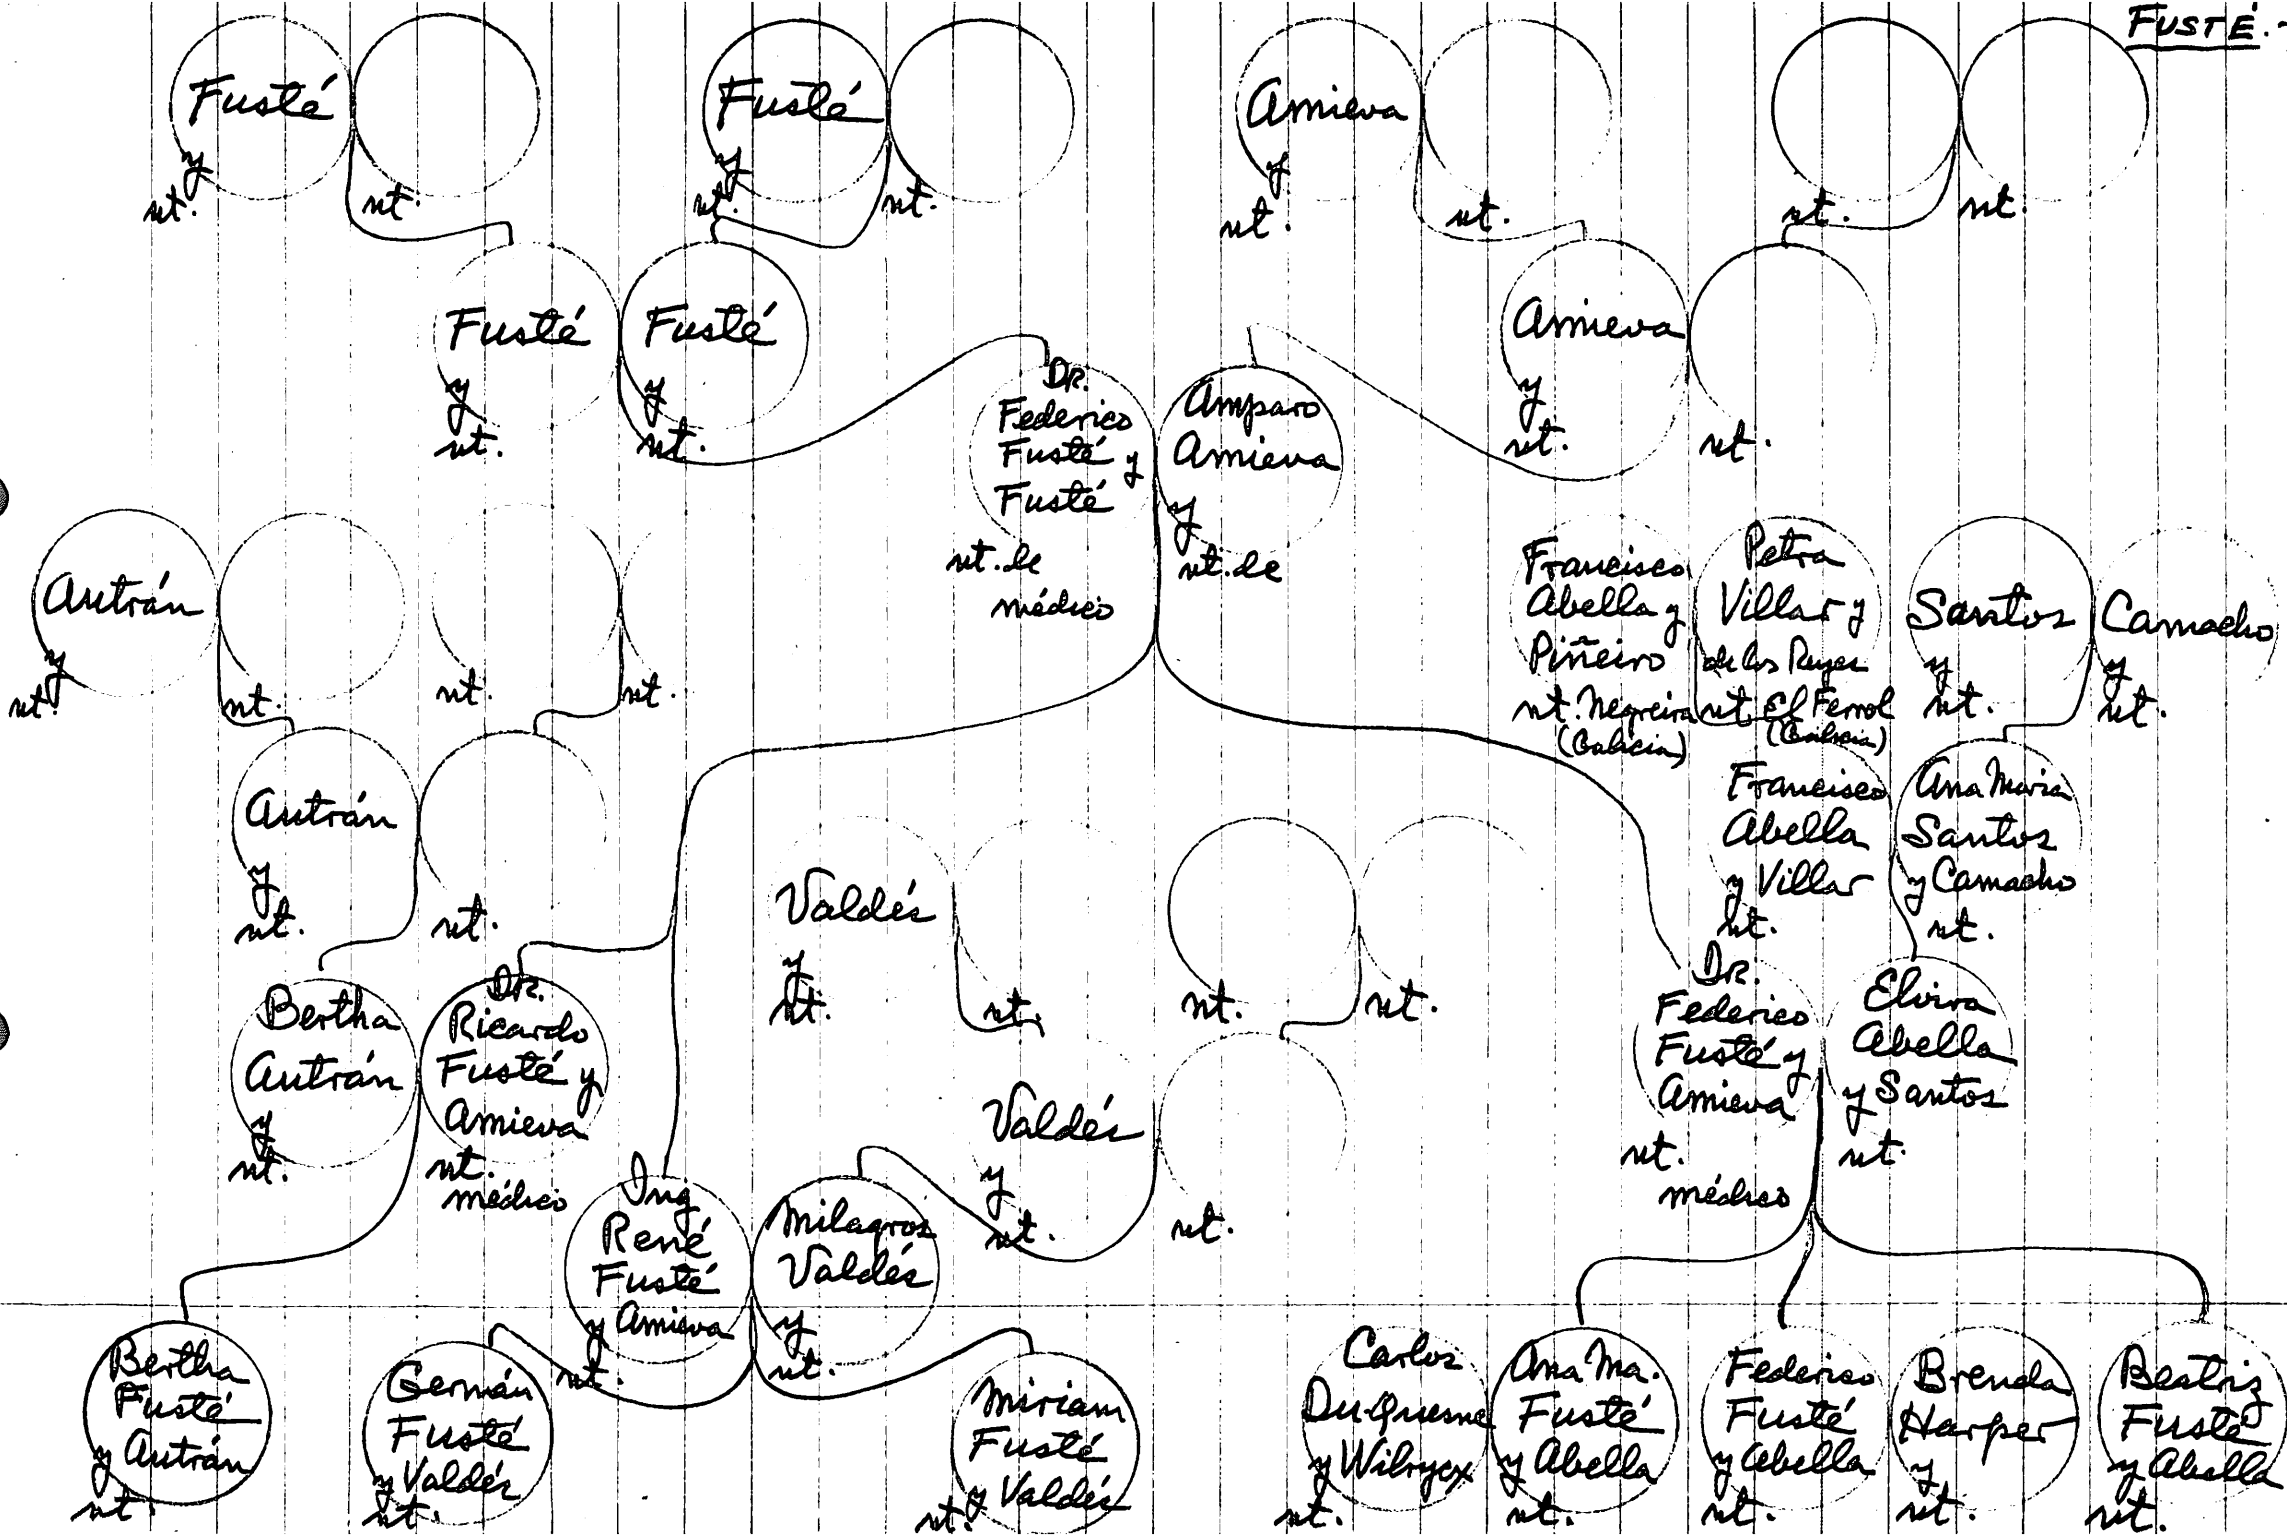 FUSTÉ.-
Fusté
y
nt.
nt.
Fusté
y
nt.
nt.
Amieva
y
nt.
nt.
nt.
nt.
Fusté
y
nt.
Fusté
y
nt.
Amieva
y
nt.
nt.
DR.
Federico
Fusté y
Fusté
nt. de
médico
Amparo
Amieva
y
nt. de
Autrán
y
nt.
nt.
nt.
nt.
Francisco
Abella y
Piñeiro
nt. Negreira
(Galicia)
Petra
Villar y
de los Reyes
nt. El Ferrol
(Galicia)
Santos
y
nt.
Camacho
y
nt.
Autrán
y
nt.
nt.
Valdés
y
nt.
nt.
nt.
nt.
Francisco
Abella
y Villar
nt.
Ana Maria
Santos
y Camacho
nt.
Bertha
Autrán
y
nt.
DR.
Ricardo
Fusté y
Amieva
nt.
médico
Valdés
y
nt.
nt.
DR.
Federico
Fusté y
Amieva
nt.
médico
Elvira
Abella
y Santos
nt.
Ing
René
Fusté
y Amieva
nt.
Milagros
Valdés
y
nt.
Bertha
Fusté
y Autrán
nt.
Germán
Fusté
y Valdés
nt.
Miriam
Fusté
y Valdés
nt.
Carlos
Du-Quesne
nt.
Ana Ma.
Fusté
y Abella
nt.
Federico
Fusté
y Abella
nt.
Brenda
Harper
y
nt.
Beatriz
Fusté
y Abella
nt.